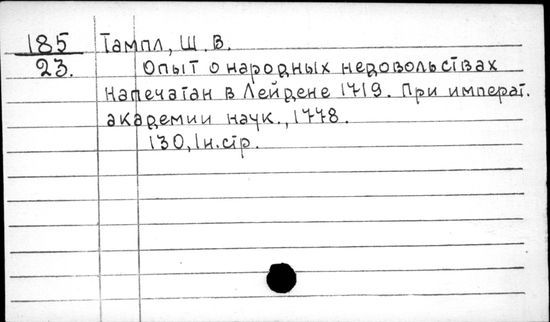 185 Тампл, Ш. В.
23. Опыт о народных недовольствах
напечатан в Лейдене 1719. При императ.
академии наук., 1778.
130, 1н.стр.